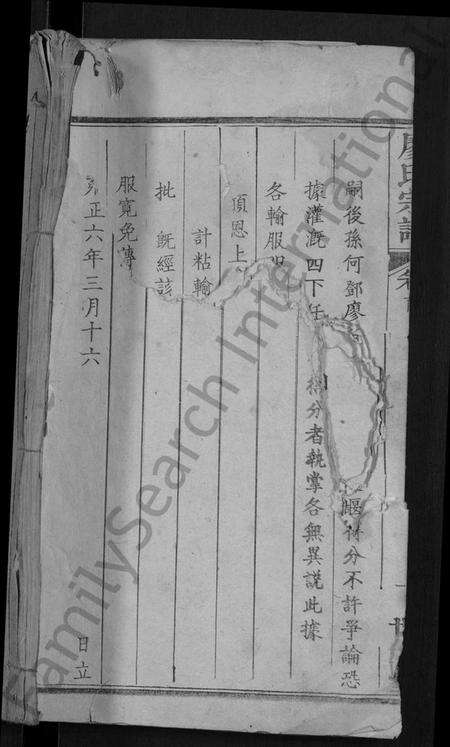 廖氏宗譜
嗣後孫何鄧廖 堰有分不許爭論恐
據灌溉四下任 有分者執掌各無異說此據
各輸服
頂恩上
計粘輸
批 既經該
服寬免
雍正六年三月十六 日立
FamilySearch International